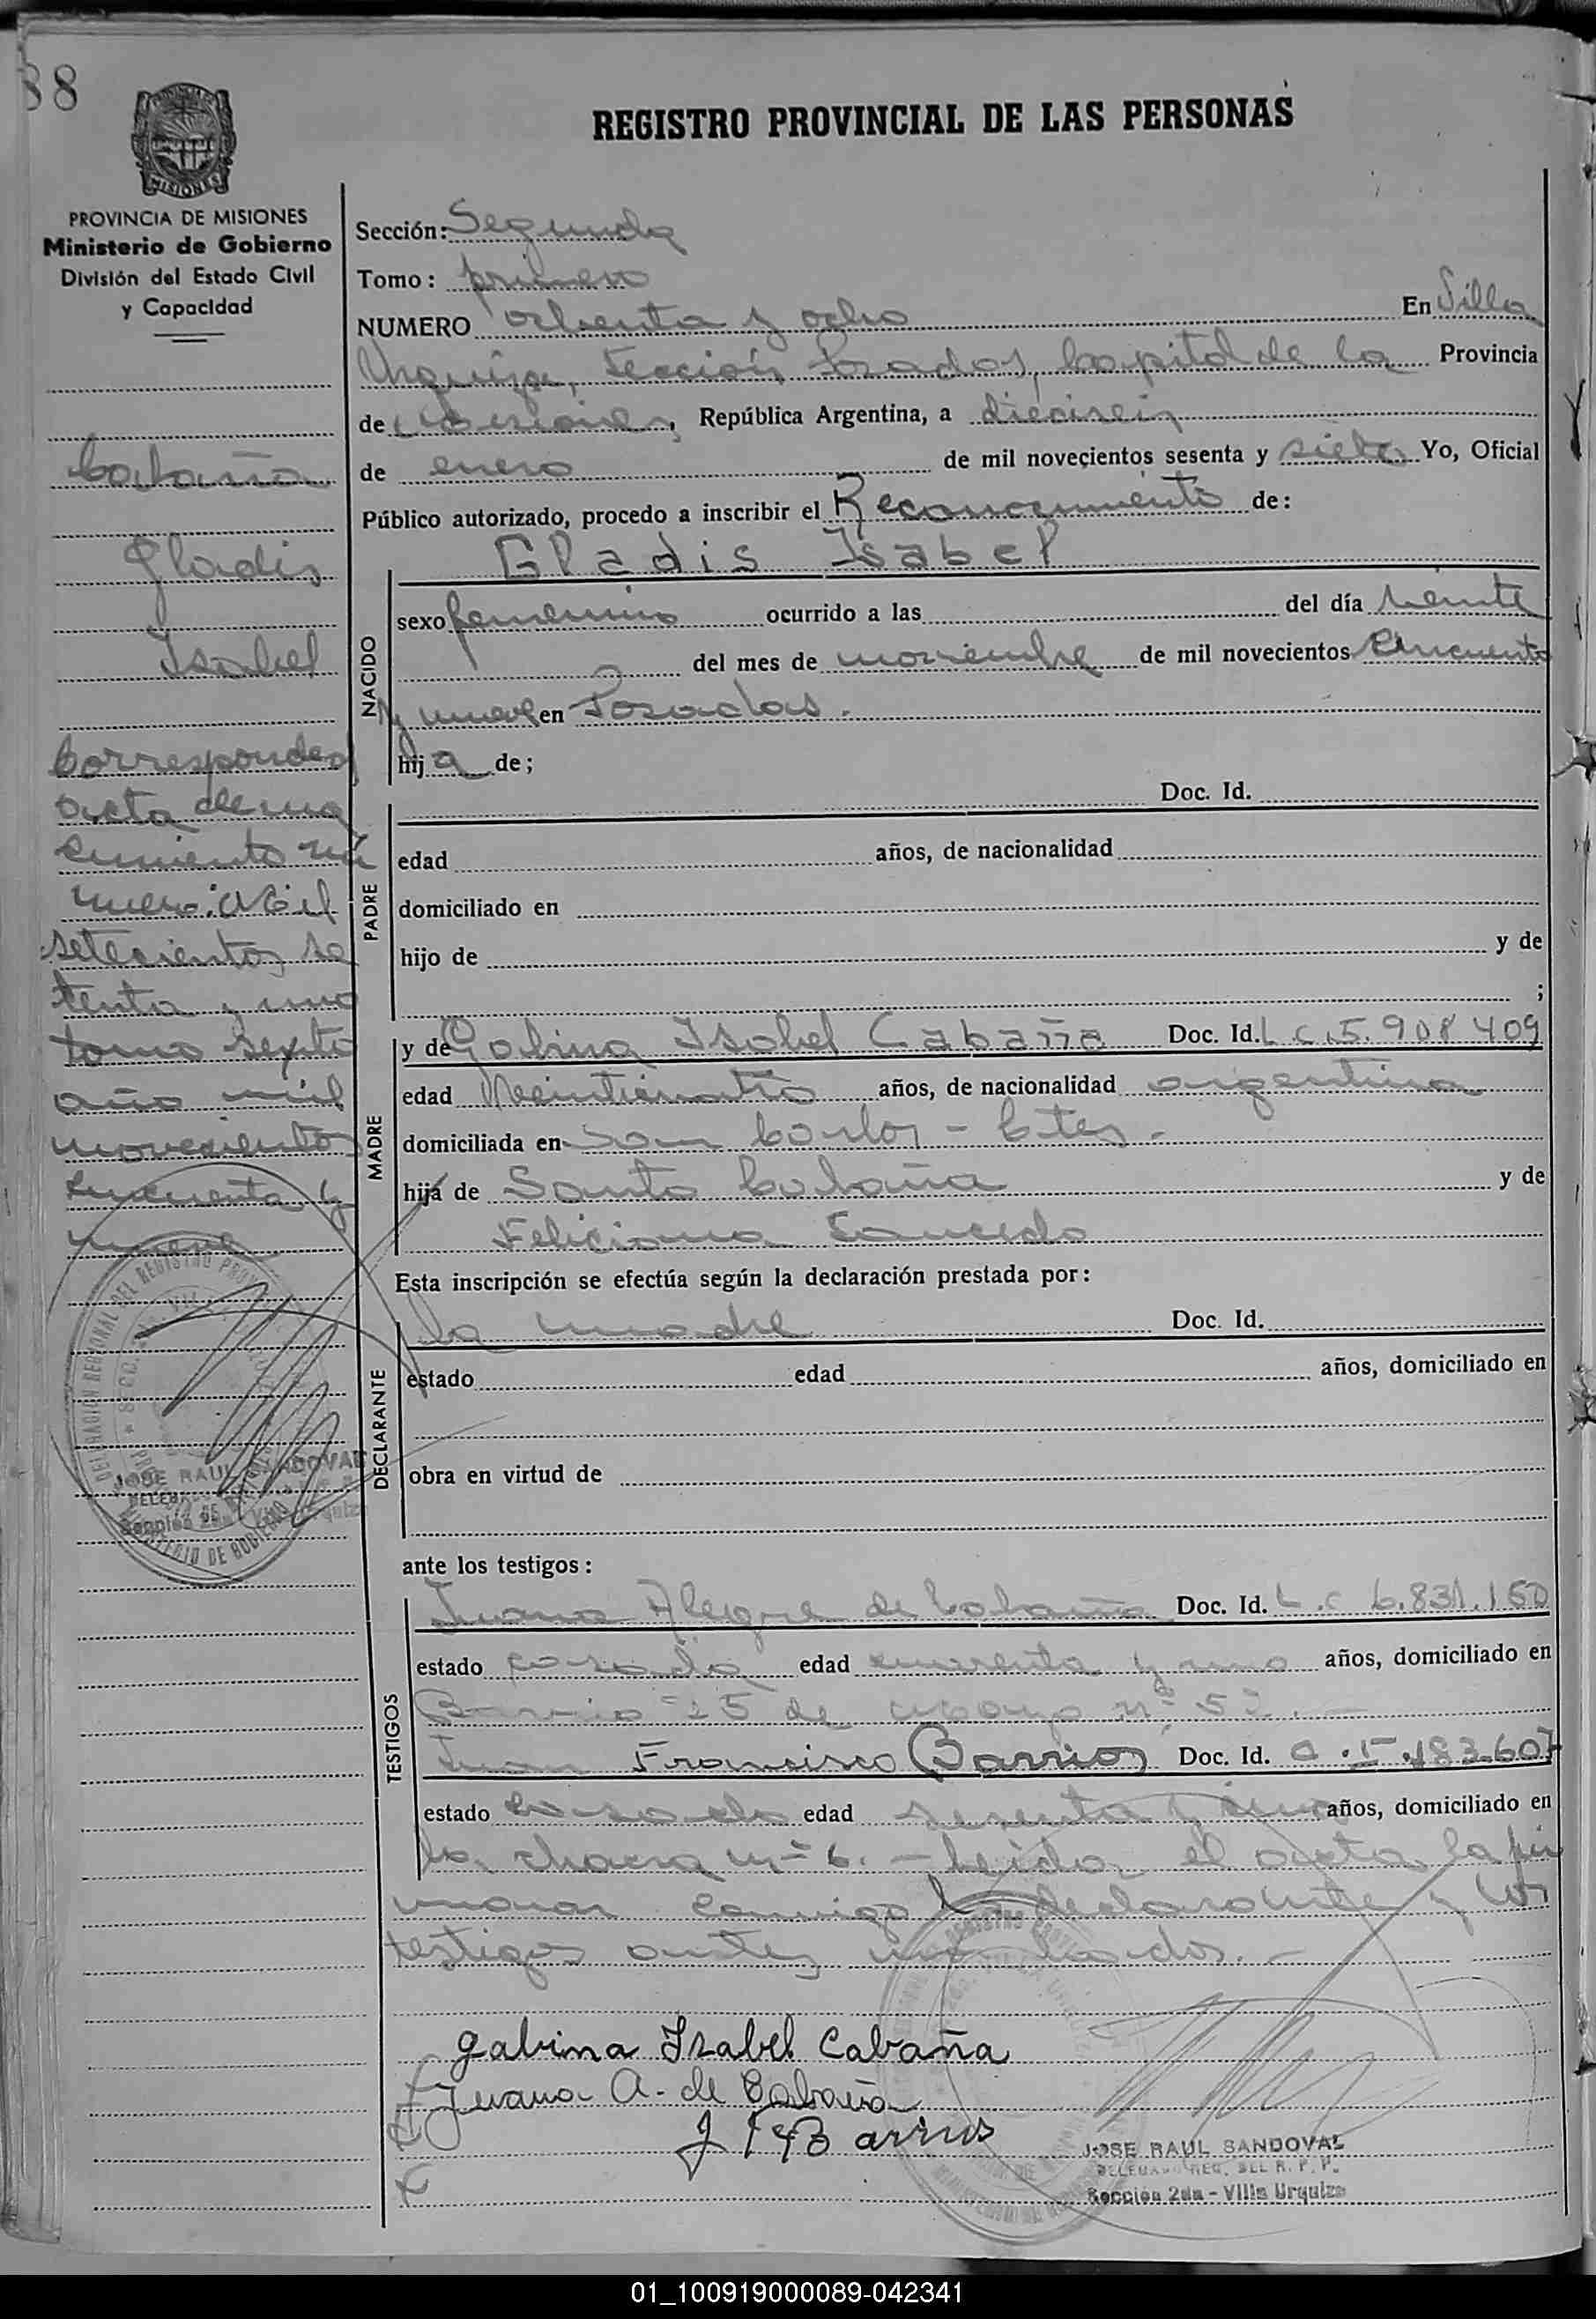 88
REGISTRO PROVINCIAL DE LAS PERSONAS
MISIONES
PROVINCIA DE MISIONES
Ministerio de Gobierno
División del Estado Civil
y Capacidad
Cabaña
Gladis
Isabel
Corresponde a
acta de na
cimiento nú
mero: Mil
setecientos se
tenta y uno
tomo sexto
año mil
novecientos
cincuenta y
nueve
JOSE RAUL SANDOVAL
Sección: Segunda
Tomo: primero
NUMERO ochenta y ocho En Villa
Urquiza, Sección Posadas, Capital de la Provincia
de Misiones, República Argentina, a dieciseis
de enero de mil novecientos sesenta y siete Yo, Oficial
Público autorizado, procedo a inscribir el Reconocimiento de:
Gladis Isabel
NACIDO
sexo femenino ocurrido a las del día veinte
del mes de noviembre de mil novecientos cincuenta
y nueve en Posadas.
hija de;
PADRE
Doc. Id.
edad años, de nacionalidad
domiciliado en
hijo de y de
;
MADRE
y de Gabina Isabel Cabaña Doc. Id. L.C. 5.908.409
edad Veinticuatro años, de nacionalidad argentina
domiciliada en San Carlos - Ctes.
hija de Santo Cabaña y de
Feliciana Saucedo
Esta inscripción se efectúa según la declaración prestada por:
DECLARANTE
la madre Doc. Id.
estado edad años, domiciliado en
obra en virtud de
ante los testigos:
TESTIGOS
Juana Alegre de Cabaña Doc. Id. L.C 6.831.150
estado casada edad cuarenta y uno años, domiciliado en
Barrio 25 de Mayo nº 52.
Juan Francisco Barrios Doc. Id. C.I. 183.607
estado casado edad sesenta y años, domiciliado en
la chacra nº 6. - Leida el acta la fir
maron conmigo la declarante y los
testigos antes
Gabina Isabel Cabaña
Juana A. de Cabaña
J F Barrios
JOSE RAUL SANDOVAL
DELEGADO REG. DEL R. P. P.
Sección 2da - Villa Urquiza
01_100919000089-042341